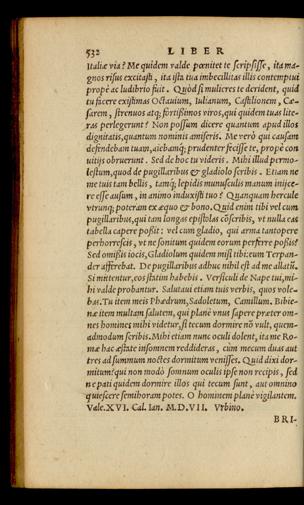 532 LIBER
Italiæ via? Me quidem valde pœnitet te scripsisse, ita ma-
gnos risus excitasti, ita ista tua imbecillitas illis contemptui
propè ac ludibrio fuit. Quòd si mulieres te derident, quid
tu facere existimas Octauium, Iulianum, Castilionem, Cæ-
sarem, strenuos atq; fortissimos viros, qui quidem tuas lite-
ras perlegerunt? Non possum dicere quantum apud illos
dignitatis, quantum nominis amiseris. Me verò qui causam
defendebam tuam, aiebamq; prudenter fecisse te, propè con
uitijs obruerunt. Sed de hoc tu videris. Mihi illud permo-
lestum, quod de pugillaribus & gladiolo scribis. Etiam ne
me tuis tam bellis, tamq; lepidis munusculis manum inijce-
re esse ausum, in animo induxisti tuo? Quanquam hercule
utrunq; poteram ex æquo & bono. Quid enim tibi vel cum
pugillaribus, qui tam longas epistolas cõscribis, vt nulla eas
tabella capere possit: vel cum gladio, qui arma tantopere
perhorrescis, vt ne sonitum quidem eorum perferre possis?
Sed omissis iocis, Gladiolum quidem misi tibi: eum Terpan-
der afferebat. De pugillaribus adhuc nihil est ad me allatũ.
Si mittentur, eos statim habebis. Versiculi de Nape tui, mi-
hi valde probantur. Salutaui etiam tuis verbis, quos vole-
bas. Tu item meis Phædrum, Sadoletum, Camillum. Bibie-
næ item multam salutem, qui planè vnus sapere præter om-
nes homines mihi videtur, si tecum dormire nõ vult, quem-
admodum scribis. Mihi etiam nunc oculi dolent, ita me Ro-
mæ hac æstate insomnem reddideras, cùm mecum duas aut
tres ad summum noctes dormitum venisses. Quid dixi dor-
mitum? qui non modò somnum oculis ipse non recipis, sed
ne pati quidem dormire illos qui tecum sunt, aut omnino
quiescere semihoram potes. O hominem planè vigilantem.
Vale. XVI. Cal. Ian. M.D.VII. Vrbino.
BRI-